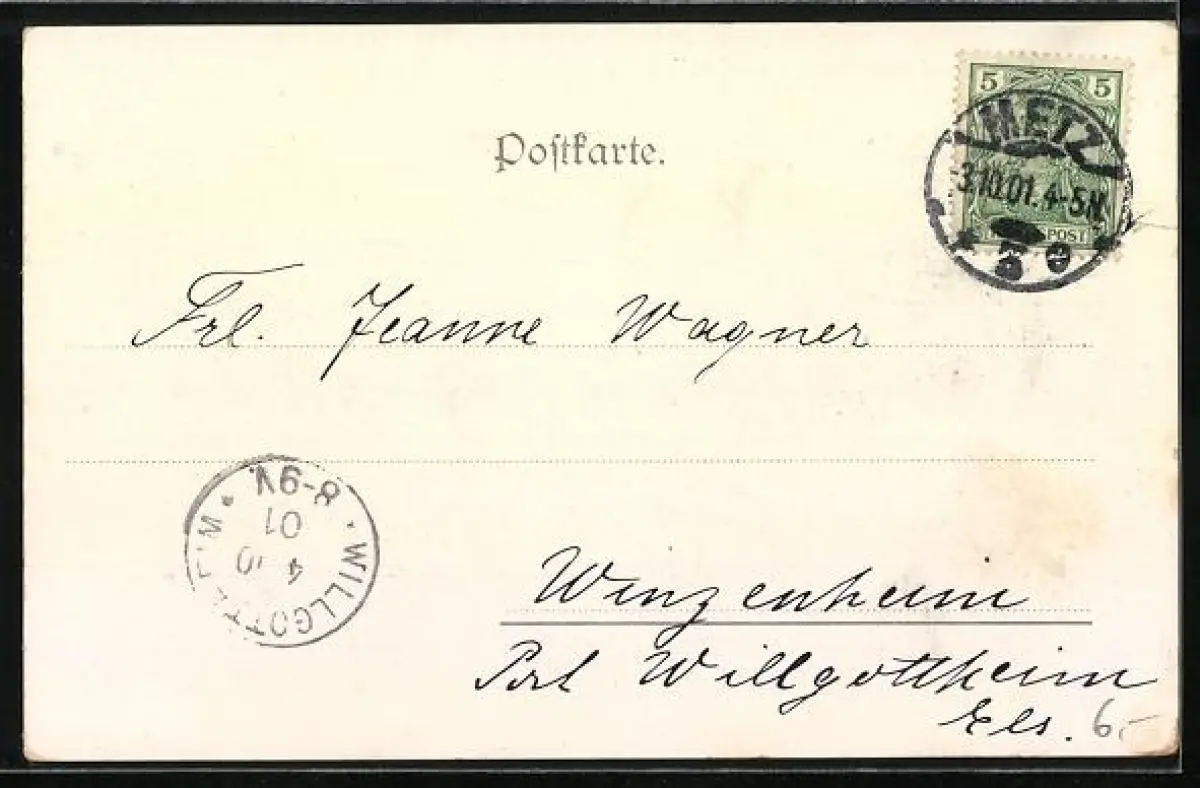 5 5
METZ
3.10.01.4-5N.
POST
Postkarte.
Frl. Jeanne Wagner
8-9V.
01
4
WILLGOTT
Winzenheim
Post Willgottheim
Els. 6.-